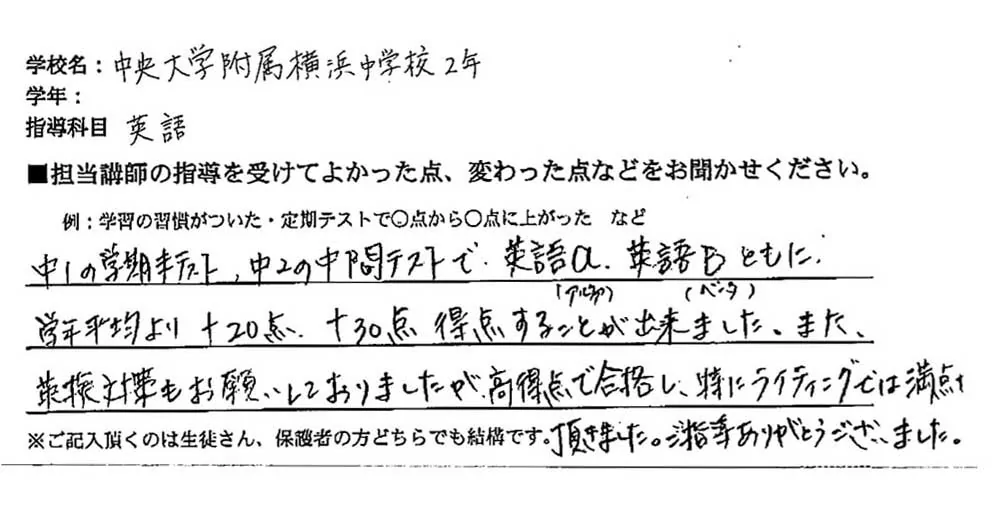 学校名：中央大学附属横浜中学校2年
学年：
指導科目 英語
■担当講師の指導を受けてよかった点、変わった点などをお聞かせください。
例：学習の習慣がついた・定期テストで〇点から〇点に上がった など
中1の学期末テスト、中2の中間テストで、英語α、英語βともに、
(アルファ) (ベータ)
学年平均より +20点、+30点 得点することが出来ました。また、
英検対策もお願いしておりましたが、高得点で合格し、特にライティングでは満点を
※ご記入頂くのは生徒さん、保護者の方どちらでも結構です。頂きました。ご指導ありがとうございました。